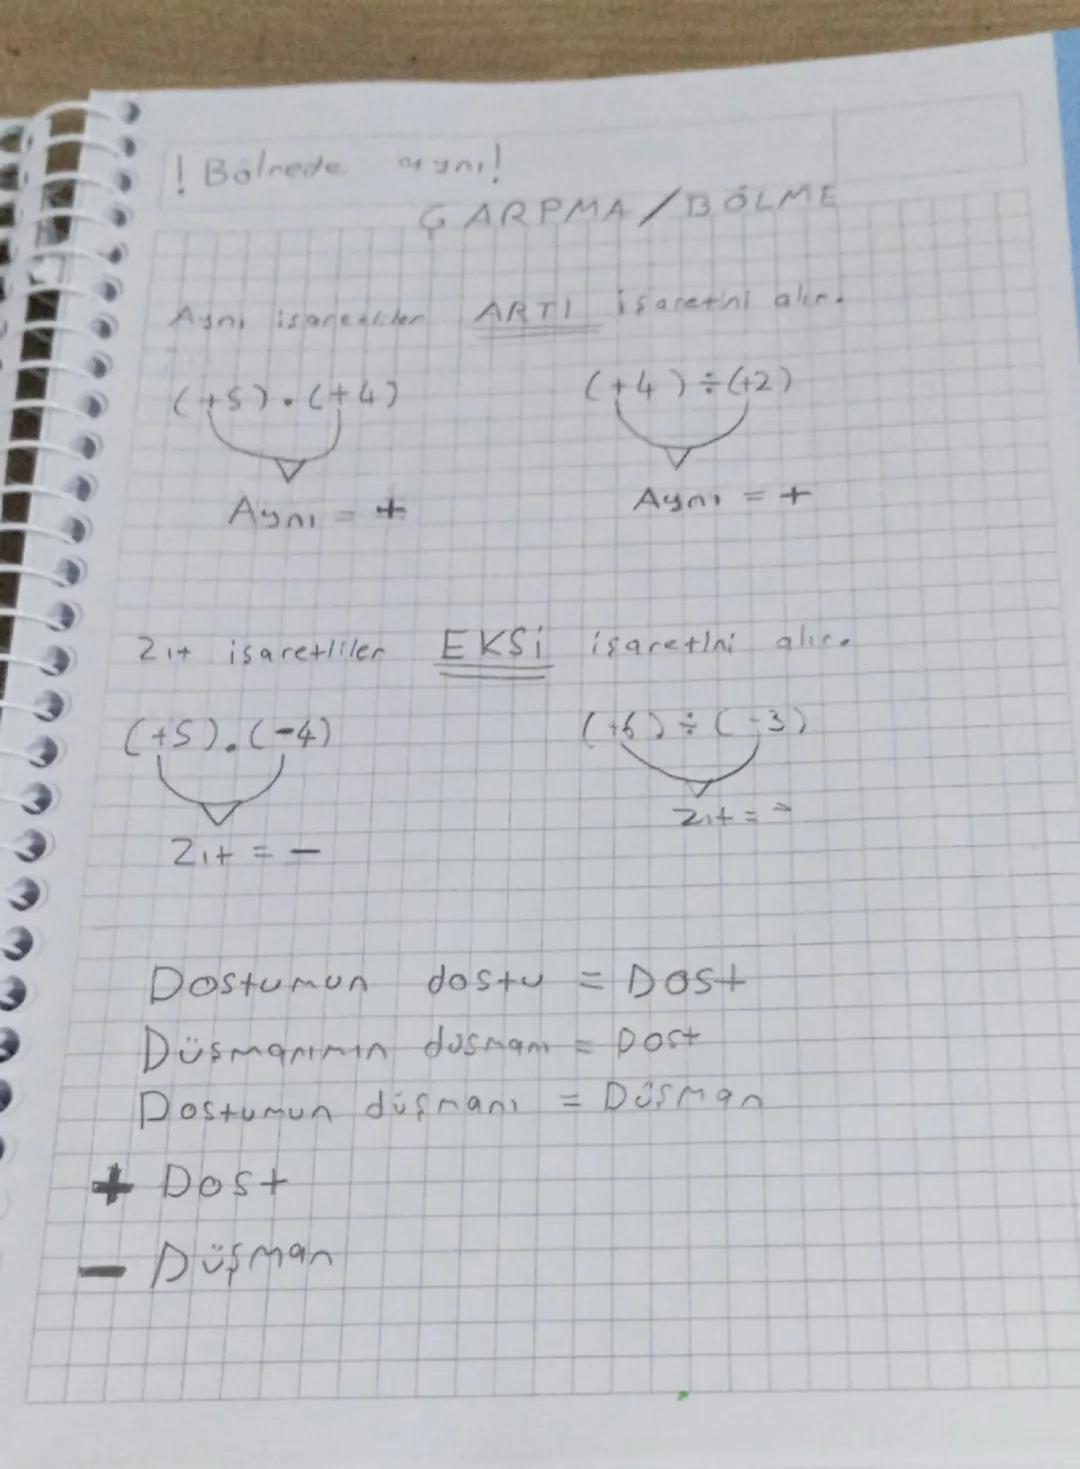 ! Bölmede aynı!
ÇARPMA/BÖLME
Aynı işaretliler ARTI işaretini alır.
(+5).(+4) (+4)÷(+2)
Aynı = + Aynı = +
Zıt işaretliler EKSİ işaretini alır.
(+5).(-4) (+6)÷(-3)
Zıt = - Zıt = -
Dostumun dostu = Dost
Düşmanımın düşmanı = Dost
Dostumun düşmanı = Düşman
+ Dost
- Düşman